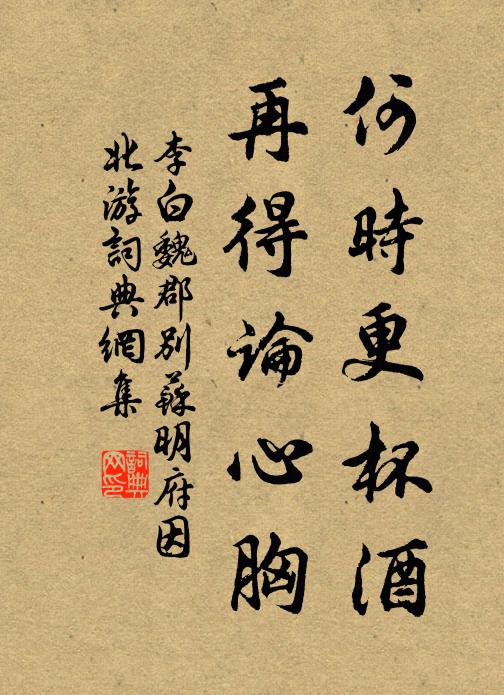 何時更杯酒
再得論心胸
李白魏郡別蘇明府因
北游詞典網集
詞典
网印